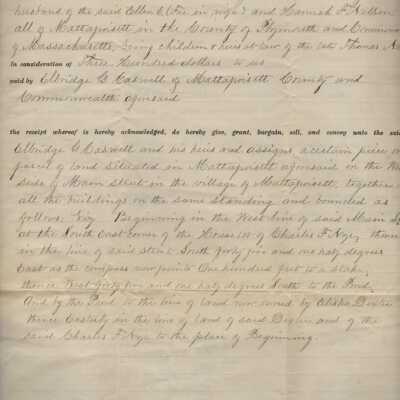 husband of the said Ellen C. Cole in right and Hannah F. Nelson
all of Mattapoisett in the County of Plymouth and Commonw
of Massachusetts, being children & heirs at law of the late Thomas N.
In consideration of Three Hundred dollars to us
paid by Elbridge G. Caswell of Mattapoisett County and
Commonwealth aforesaid
the receipt whereof is hereby acknowledged, do hereby give, grant, bargain, sell, and convey unto the said
Elbridge G. Caswell and his heirs and assigns a certain piece or
parcel of land situated in Mattapoisett aforesaid on the We
side of Main Street in the village of Mattapoisett, together
all the buildings on the same standing and bounded as
follows: Viz Beginning in the West line of said Main St
at the South East corner of the House lot of Charles F. Nye, thence
in the line of said street South forty five and one half degrees
East as the compass now points One hundred feet to a stake,
thence West forty five and one half degrees South to the Pond,
And by the Pond to the line of land now owned by Elisha Dexter
thence Easterly in the line of land of said Dexter and of the
said Charles F. Nye to the place of Beginning.